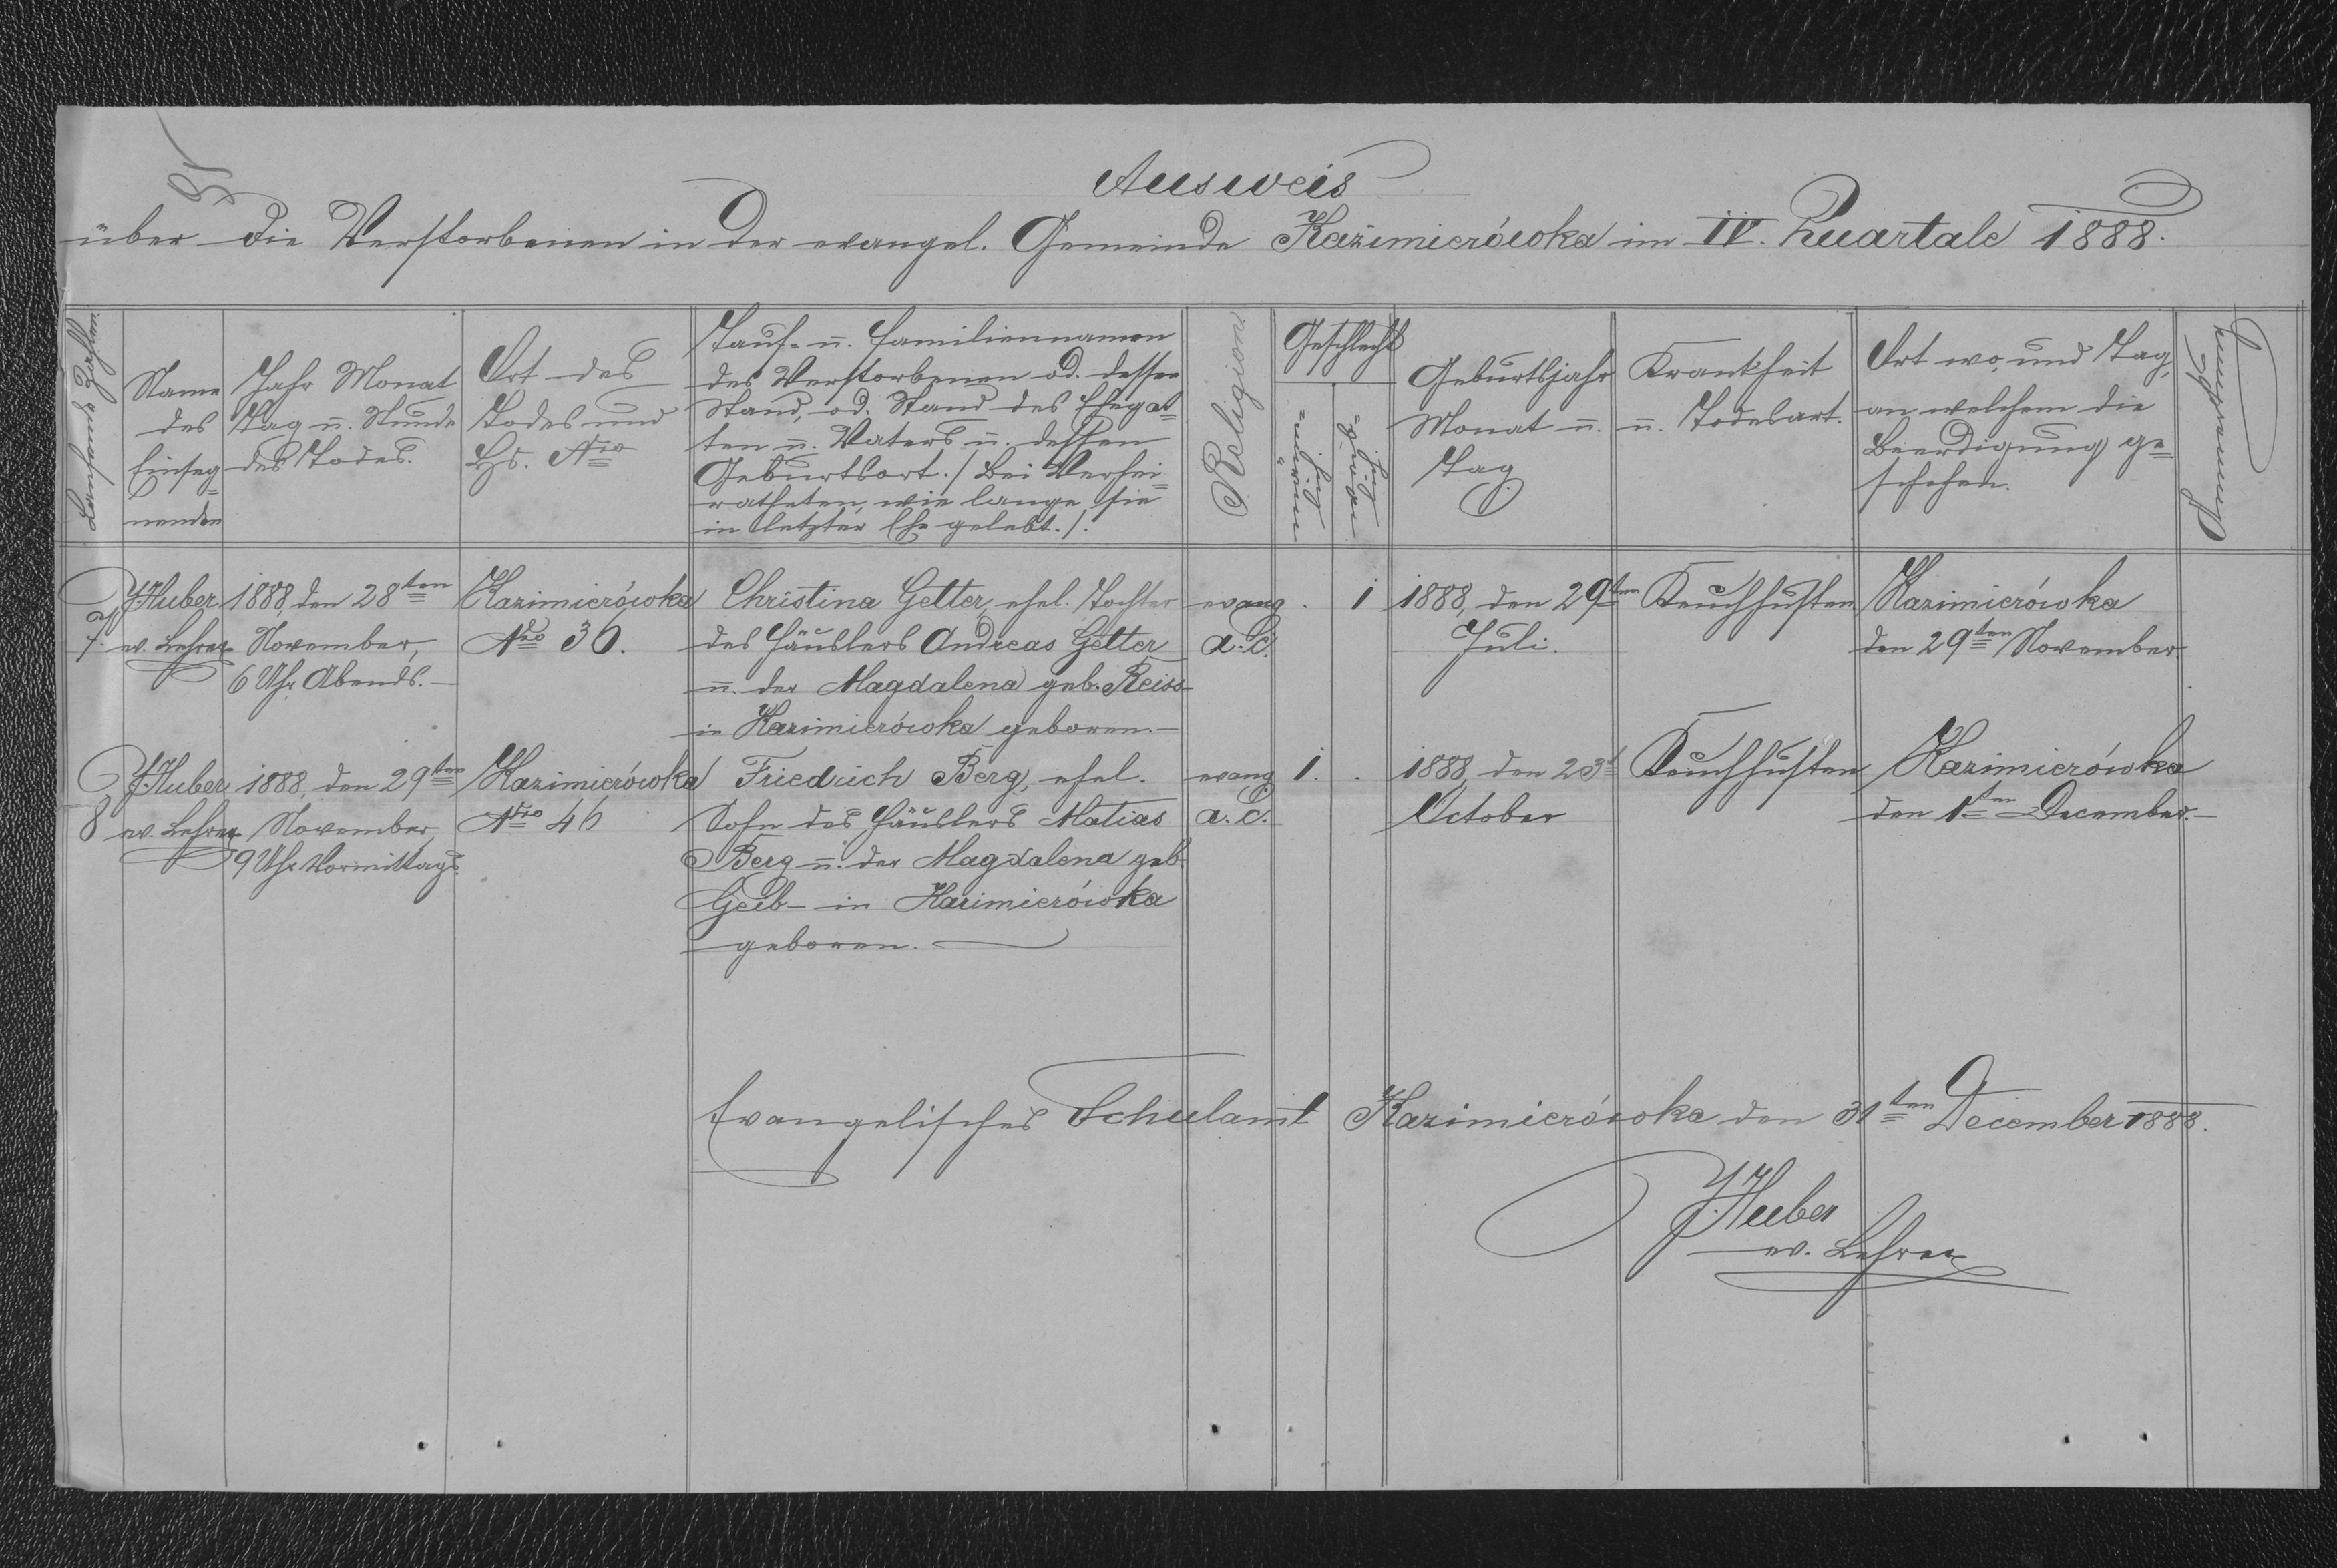 Ausweis
über die Verstorbenen in der evangel. Gemeinde Kazimierówka im IV. Quartale 1888.
Laufende Zahlen
Name
des
Einseg=
nenden
Jahr Monat
Tag u. Stunde
des Todes.
Ort des
Todes und
Hs. Nro
Tauf- u. Familiennamen
des Verstorbenen od. dessen
Stand, od. Stand des Ehegat=
ten u. Vaters u. dessen
Geburtsort. / Bei Verhei=
ratheten, wie lange sie
in letzter Ehe gelebt. /.
Religion
Geschlecht
Geburtsjahr
Monat u.
Tag
Krankheit
u. Todesart.
Ort wo, und Tag,
an welchem die
Beerdigung ge=
schehen.
Anmerkung
7. J. Huber 1888, den 28ten Kazimierówka Christina Getter, ehel. Tochter evang . 1 1888, den 29ten Keuchhusten Kazimierówka
ev. Lehrer November, Nro 36. des Häuslers Andreas Getter a. C. Juli. den 29ten November.
6 Uhr Abends. u. der Magdalena geb. Reiss
in Kazimierówka geboren.
8 J. Huber 1888, den 29ten Kazimierówka Friedrich Berg, ehel. evang 1. . 1888, den 23t Keuchhusten Kazimierówka
ev. Lehrer November, Nro 46 Sohn des Häuslers Matias a. C. October den 1ten December.
9 Uhr Vormittags. Berg u. der Magdalena geb.
Geib in Kazimierówka
geboren.
Evangelisches Schulamt Kazimierówka den 31ten December 1888.
J. Huber
ev. Lehrer